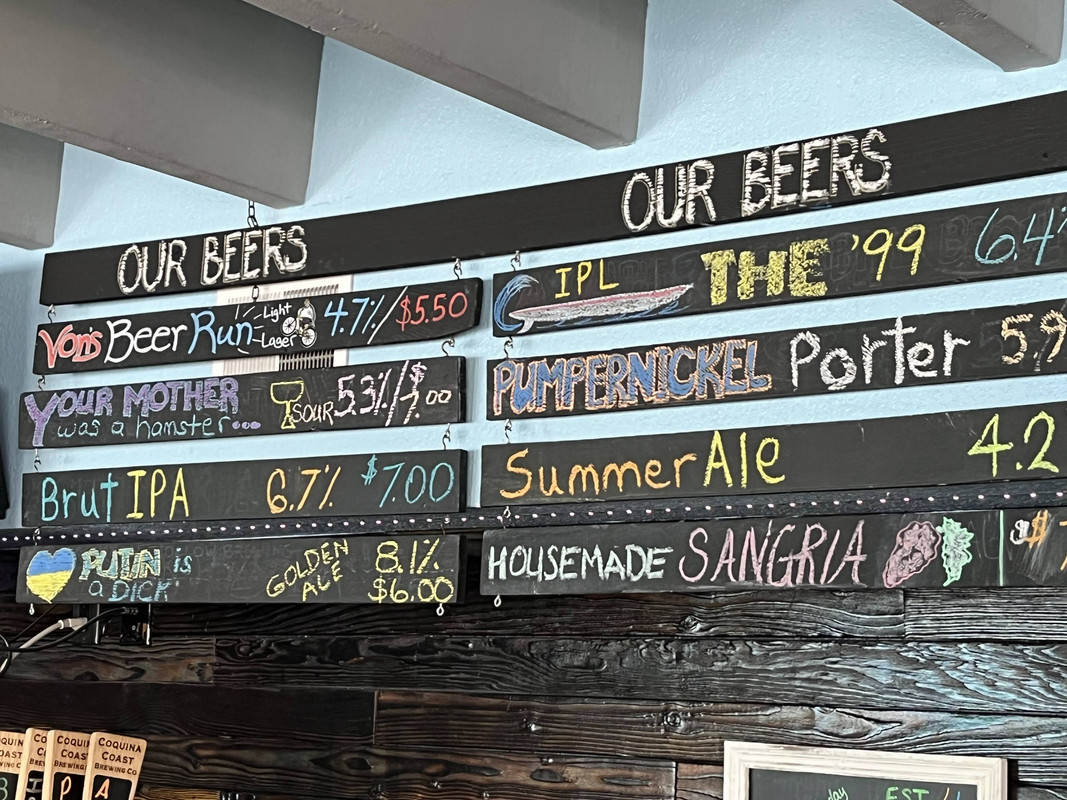 OUR BEERS
Von's Beer Run Light Lager 4.7%/$5.50
YOUR MOTHER was a hamster... SOUR 5.3%/$7.00
Brut IPA 6.7% $7.00
PUTIN is a DICK GOLDEN ALE 8.1% $6.00
OUR BEERS
IPL THE '99 6.4%
PUMPERNICKEL Porter 5.9
Summer Ale 4.2
HOUSEMADE SANGRIA $7
COQUINA COAST BREWING CO
P
COQUINA COAST BREWING CO
A
day EST